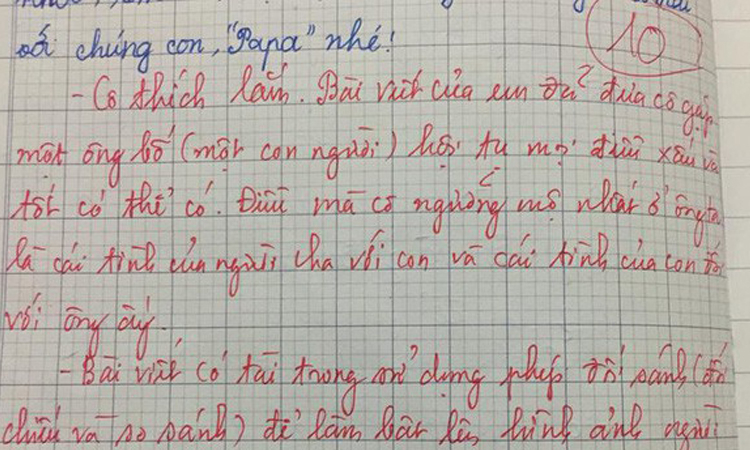 với chúng con, "Papa" nhé!
10
- Cô thích lắm. Bài viết của em đã đưa cô gặp
một ông bố (một con người) hội tụ mọi điều xấu và
tốt có thể có. Điều mà cô ngưỡng mộ nhất ở ông ta
là cái tình của người cha với con và cái tình của con đối
với ông ấy.
- Bài viết có tài trong sử dụng phép đối sánh (đối
chiếu và so sánh) để làm bật lên hình ảnh người